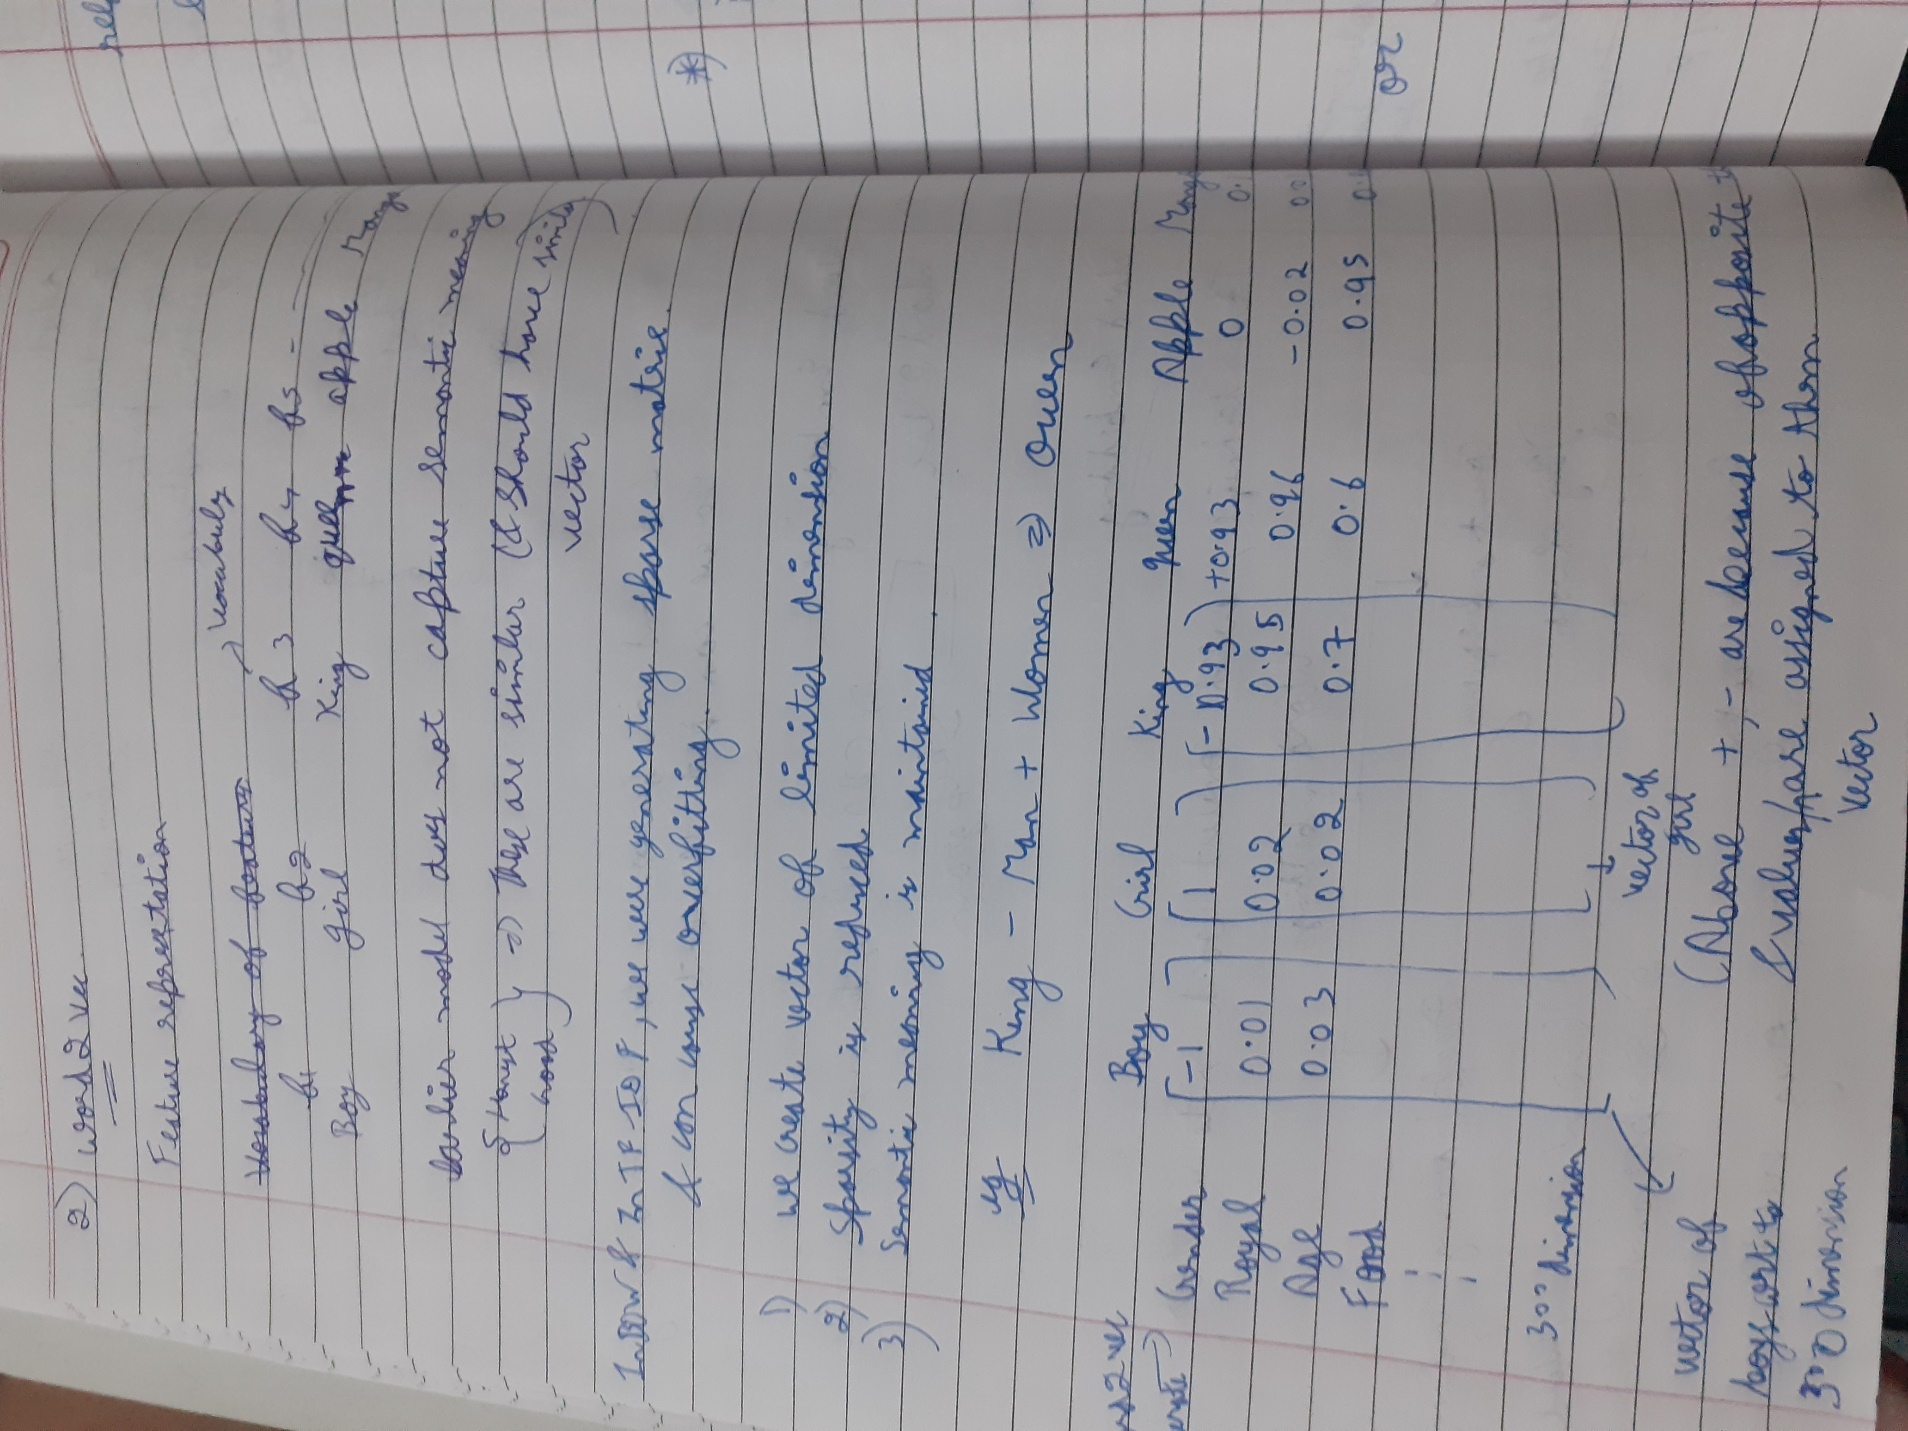 2) word2vec
Feature representation
Vocabulary of features → vocabuly
f1 f2 f3 f4 f5 - -
Boy girl King queen apple Mango
Earlier model does not capture semantic meaning
{ Honest
Good } => These are similar (& Should have similar
vector)
In BOW & In TF-IDF, we were generating sparse matrix.
& can cause overfitting.
1) We create vector of limited dimension
2) Sparsity is reduced
3) Semantic meaning is maintained.
eg King - Man + Women => Queen
Boy Girl King queen Apple Mang
Gender -1 1 -0.93 +0.93 0 0.
Royal 0.01 0.02 0.95 0.96 -0.02 0.0
Age 0.03 0.02 0.7 0.6 0.95 0.
Food
300 dimension
vector of
boy wrt to
300 dimension
vector of
girl
(Above +, - are because of opposite
values/are assigned to them
vector
or